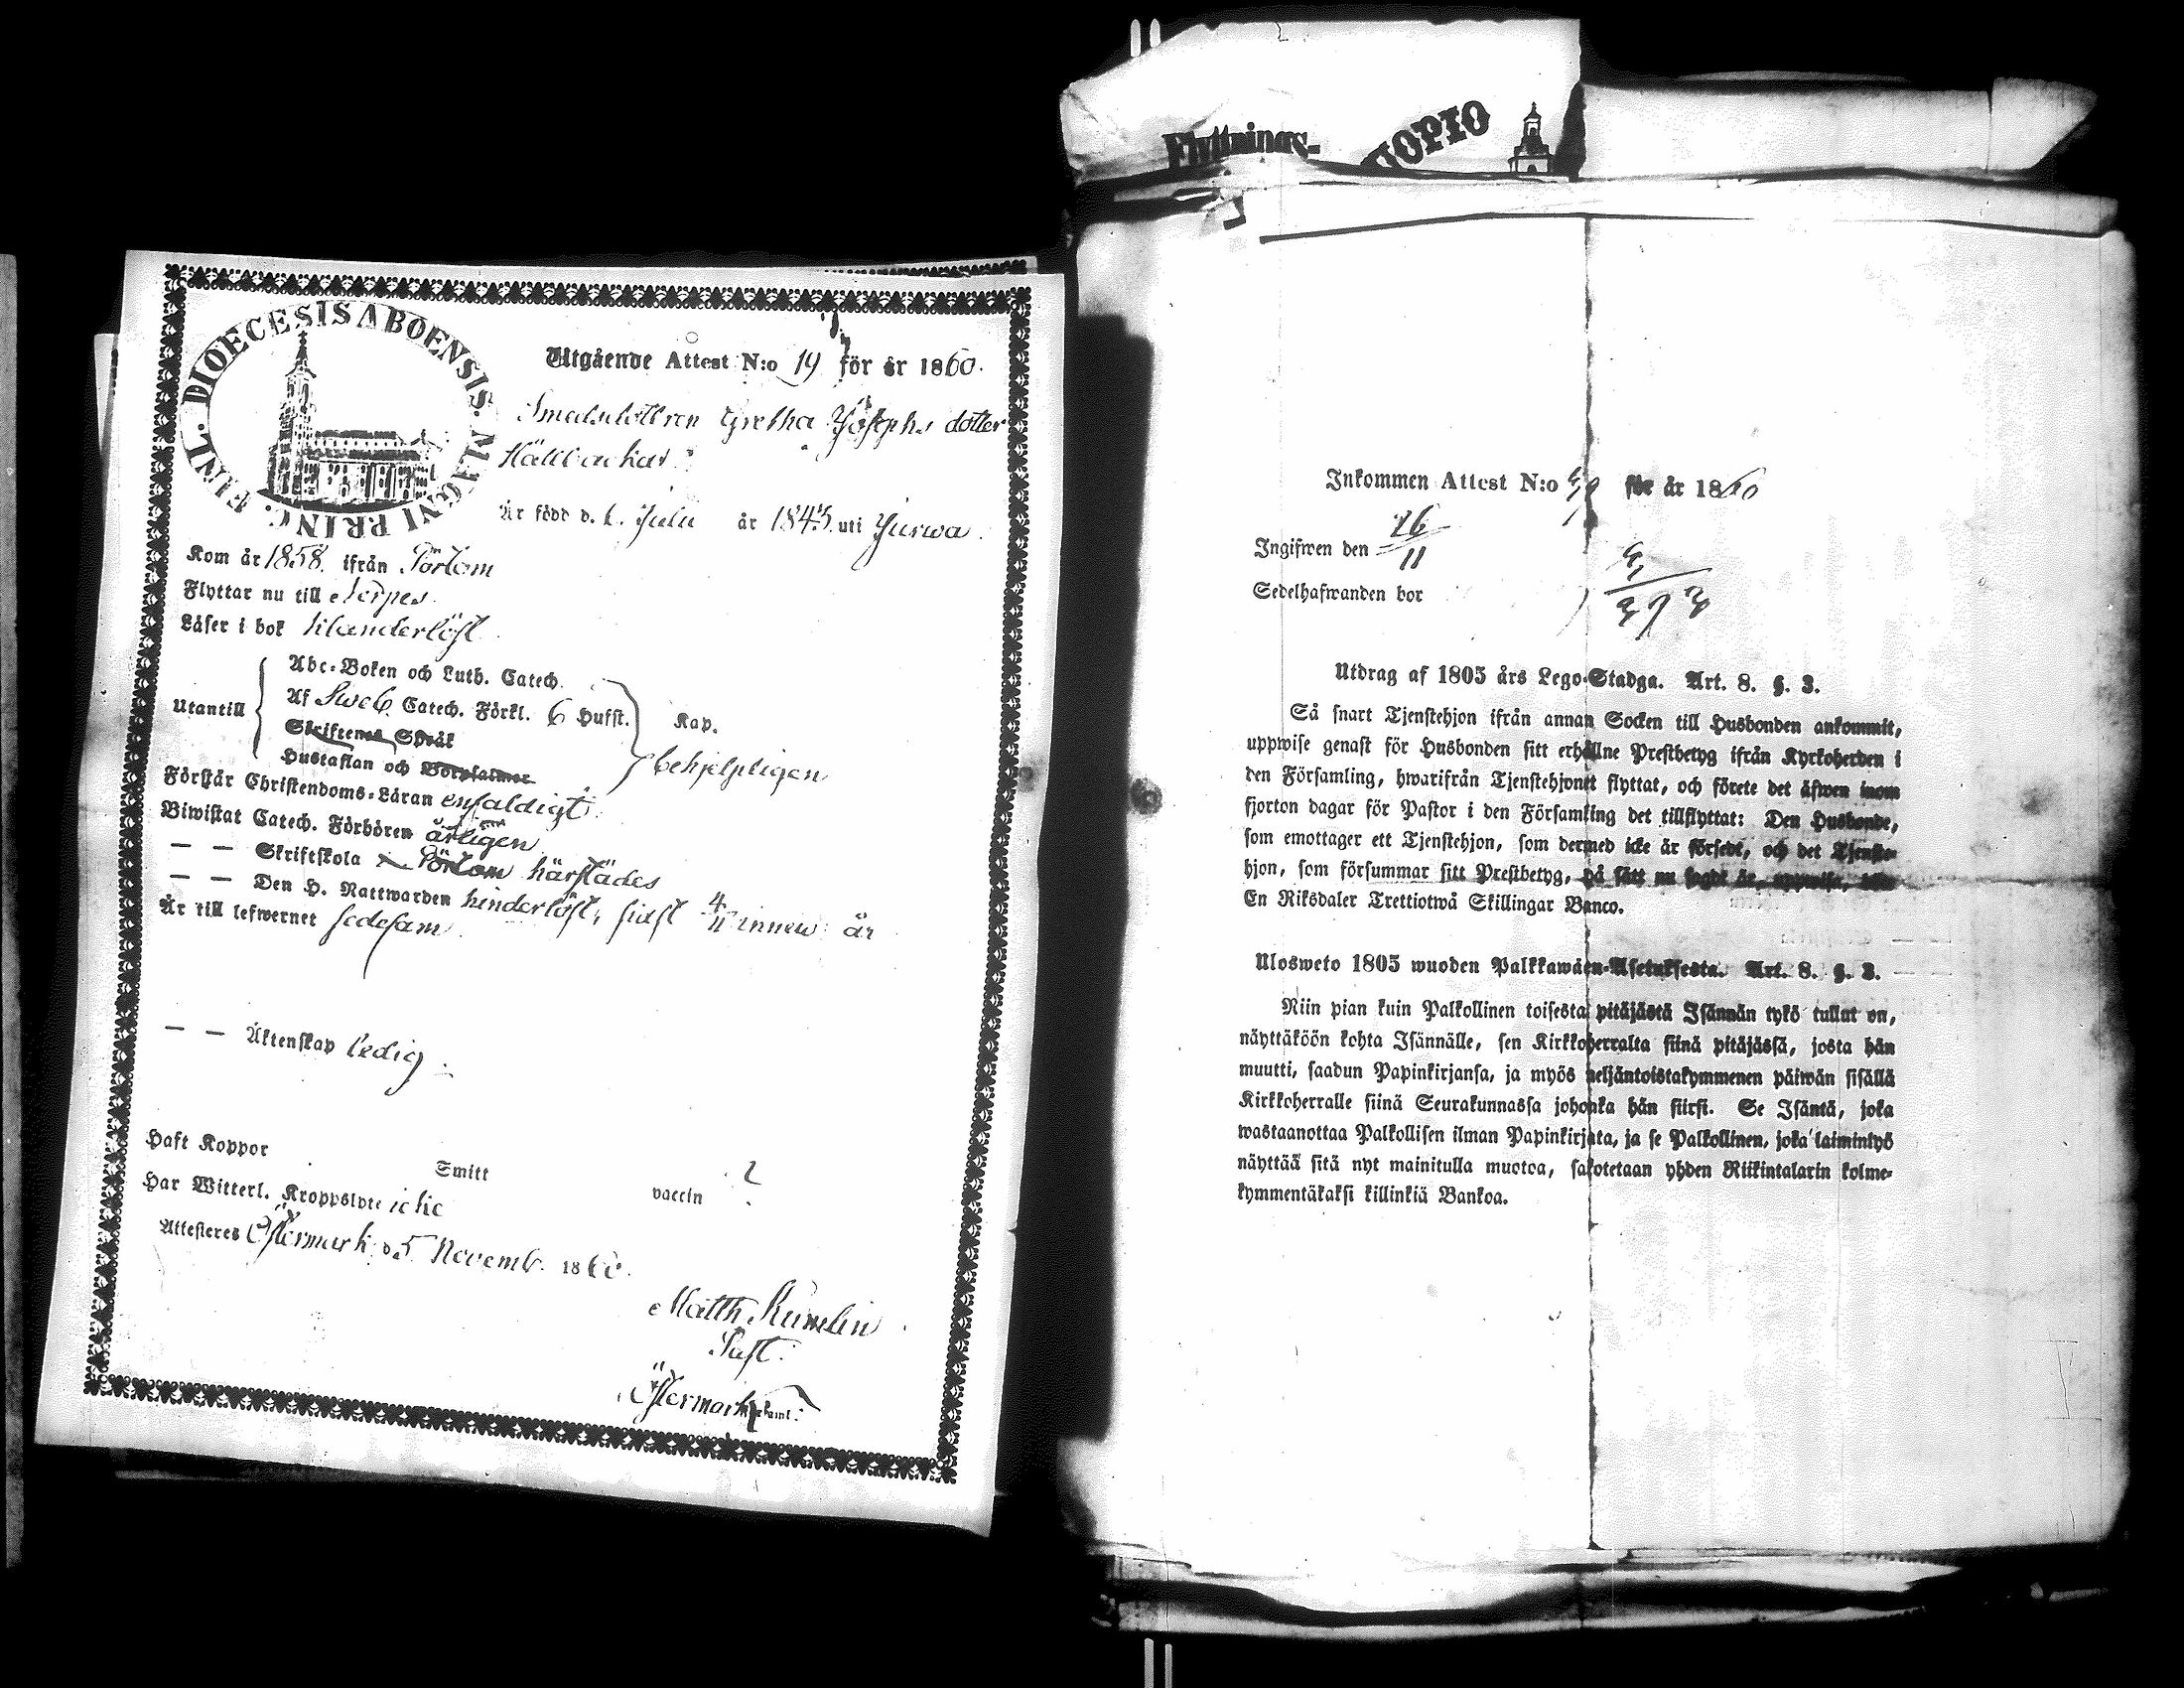 FINL. DIOECESIS ABOENSIS. MAGNI PRINC.
Utgående Attest N:o 19 för år 1860.
Smedsdottren Gretha Josephs dotter
Är född d. Julii år 1843 uti Jurwa.
Kom år 1858. ifrån Pörtom
Flyttar nu till Nerpes.
Läser i bok klanderlöst
Abc-Boken och Luth. Catech.
Utantill Af Sweb. Catech. Förkl. 6 Hufst. Kap.
Skriftenes Språk
Hustaflan och Botpsalmer behjelpligen
Förstår Christendoms-Läran enfaldigt.
Biwistat Catech. Förhören årligen
— — Skriftskola i Pörtom härstädes
— — Den H. Nattwarden hinderlöst, sidst 4/11 innew. år
Är till lefwernet sedesam
— — Äktenskap ledig.
Haft Koppor Smitt vaccin ?
Har Witterl. Kroppslyte icke
Attesteras Östermark d. 5 Novemb. 1860.
Matth. Kumlin
Past.
Östermark
Flyttnings-
UOPIO
Inkommen Attest N:o för år 1860
Ingifwen den 26/11
Sedelhafwanden bor
Utdrag af 1805 års Lego-Stadga. Art. 8. §. 3.
Så snart Tjenstehjon ifrån annan Socken till Husbonden ankommit,
uppwise genast för Husbonden sitt erhållne Prestbetyg ifrån Kyrkoherden i
den Församling, hwarifrån Tjenstehjonet flyttat, och förete det äfwen inom
fjorton dagar för Pastor i den Församling det tillflyttat: Den Husbonde,
som emottager ett Tjenstehjon, som dermed icke är försedt, och det Tjenste-
hjon, som försummar sitt Prestbetyg, på sätt nu sagdt är, uppwisa, böte
En Riksdaler Trettiotwå Skillingar Banco.
Ulosweto 1805 wuoden Palkkawäen-Asetuksesta. Art. 8. §. 3.
Niin pian kuin Palkollinen toisesta pitäjästä Isännän tykö tullut on,
näyttäköön kohta Isännälle, sen Kirkkoherralta siinä pitäjässä, josta hän
muutti, saadun Papinkirjansa, ja myös neljäntoistakymmenen päiwän sisällä
Kirkkoherralle siinä Seurakunnassa johonka hän siirsi. Se Isäntä, joka
wastaanottaa Palkollisen ilman Papinkirjata, ja se Palkollinen, joka laiminlyö
näyttää sitä nyt mainitulla muotoa, sakotetaan yhden Riikintalarin kolme-
kymmentäkaksi killinkiä Bankoa.